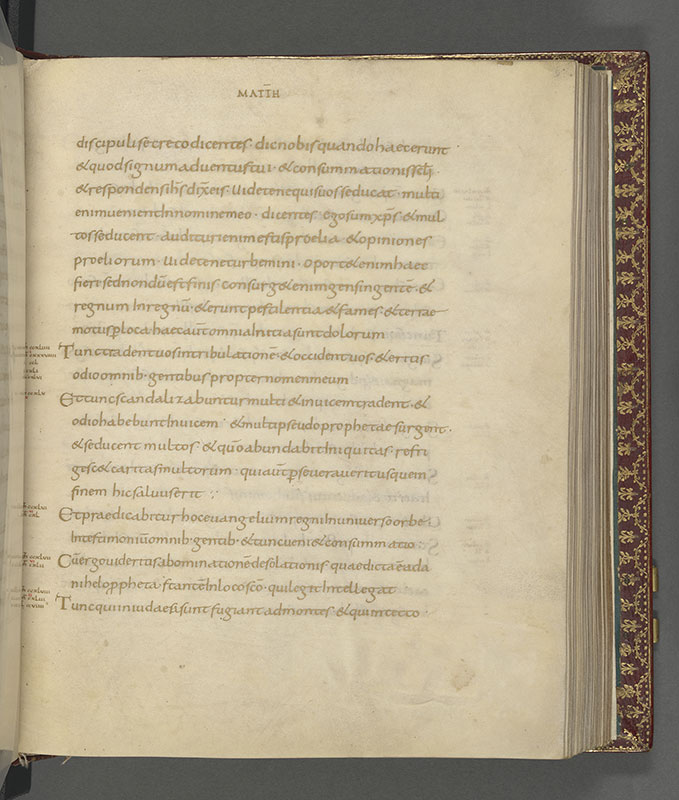 MATTH
discipuli secreto dicentes · dic nobis quando haec erunt
& quod signum aduentus tui · & consummationis scli
& respondens ihs dix eis · Uidete ne quis uos seducat · multi
enim uenient In nomine meo · dicentes ego sum xps & mul
tos seducent · audituri enim estis proelia & opiniones
proeliorum · Uidete ne turbemini · oport& enim haec
fieri sed nondū est finis consurg& enim gens in gentē · &
regnum In regnū · & erunt pestilentia & fames & terrae
motus p loca haec aūt omnia Initia sunt dolorum
Tunc tradent uos in tribulationē · & occident uos · & eritis
odio omnib · gentibus propter nomen meum
Et tunc scandalizabuntur multi & inuicem tradent · &
odio habebunt Inuicem · & multi pseudoprophetae surgent ·
& seducent multos & qūo abundabit Iniquitas · refri
gesc& caritas multorum · qui aūt pseuerauerit usque in
finem hic saluus erit
Et praedicabitur hoc euangelium regni In uniuerso orbe
In testimoniū omnib · gentib · & tunc ueni& consummatio
Cū ergo uideritis abominationē desolationis quae dicta ē a da
nihelo ppheta stantē In loco sco · qui legit Intellegat
Tunc qui in iudaea sunt fugiant ad montes & qui in tecto